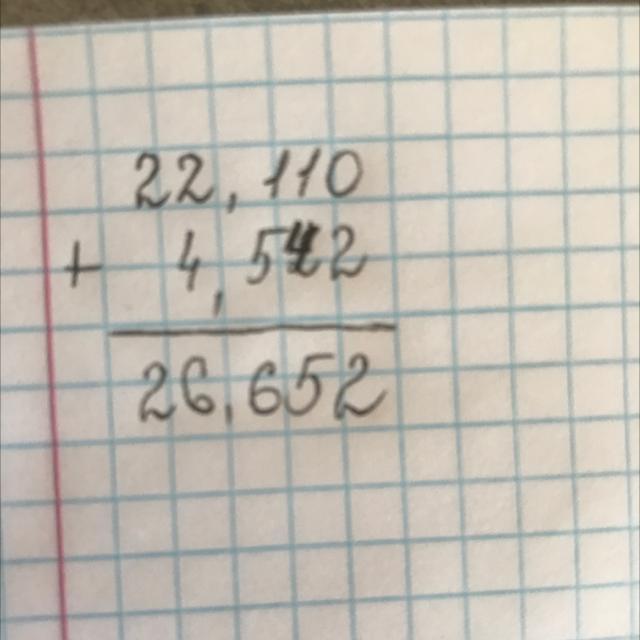 22,110
+ 4,542
26,652